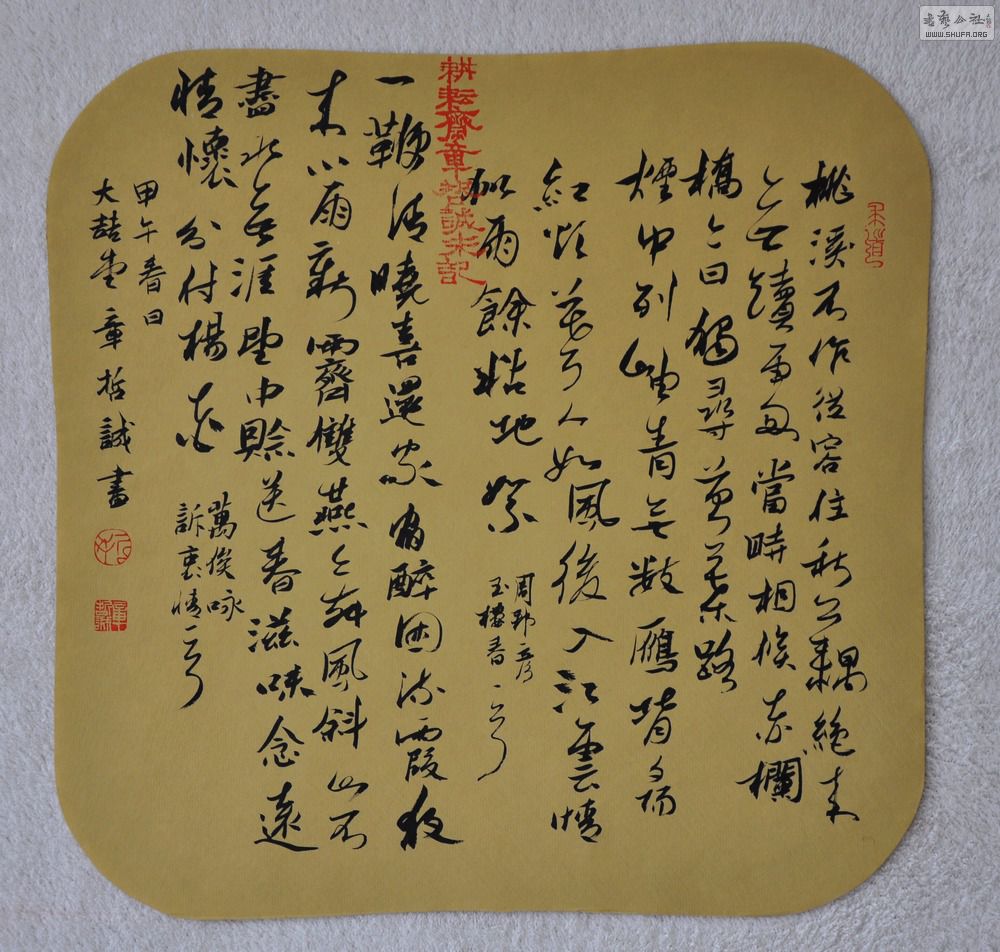 桃溪不作從容住秋藕絕来
無續處當時相候赤欄
橋今日獨尋黃葉路
煙中列岫青無數鴈背夕陽
紅欲暮人如風後入江雲情
似雨餘粘地絮
周邦彥
玉樓春一首
一鞭清曉喜還家宿醉困流霞夜
来小雨新霽雙燕舞風斜山不
盡水無涯望中賒送春滋味念遠
情懷分付楊花
萬俟咏
訴衷情一首
甲午春日
大喆堂章哲誠書
耕耘齋章哲誠朱記
书艺公社
WWW.SHUFA.ORG